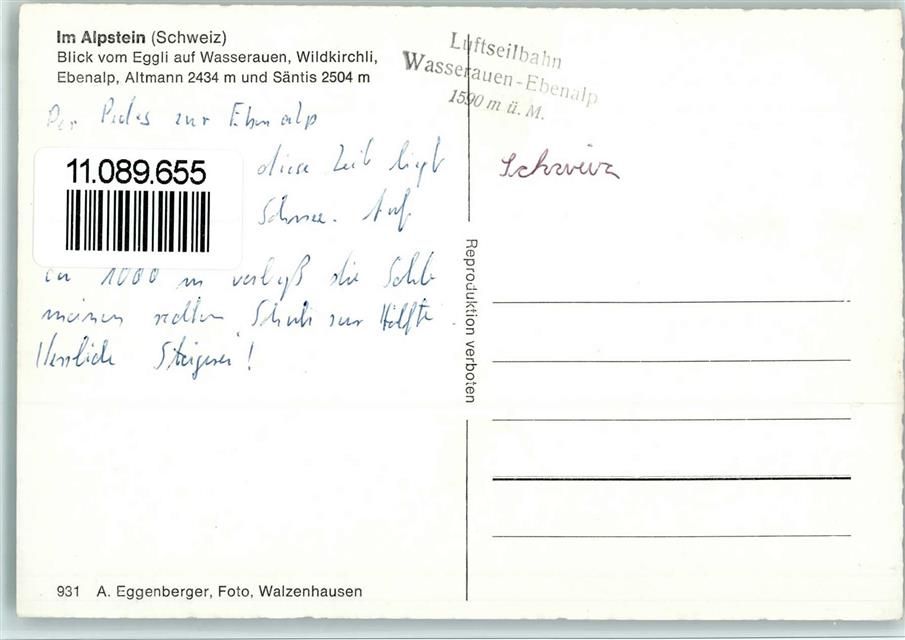 Im Alpstein (Schweiz)
Blick vom Eggli auf Wasserauen, Wildkirchli,
Ebenalp, Altmann 2434 m und Säntis 2504 m
Luftseilbahn
Wasserauen-Ebenalp
1590 m ü. M.
Schweiz
Der zur Ebenalp
11.089.655
diese Zeit liegt
Schnee. Auf
ca 1000 m verließ die Sohle
meinen rechten Schuh zur Hälfte.
Herrliche Steigerei!
Reproduktion verboten
931 A. Eggenberger, Foto, Walzenhausen